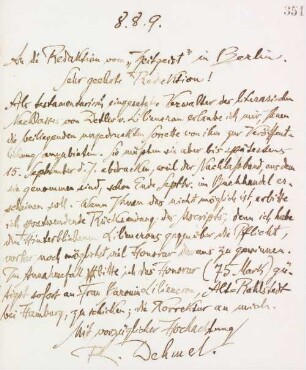 351
8.8.9.
An die Redaktion vom „Zeitgeist" in Berlin.
Sehr geehrte Redaktion!
Als testamentarisch eingesetzter Verwalter des literarischen
Nachlasses von Detlev v. Liliencron erlaube ich mir, Ihnen
die beiliegenden ungedruckten von ihm zur Veröffent-
lichung anzubieten. Sie müßten sie aber bis spätestens
15. September d. J. abdrucken, weil der Nachlaßband, aus dem
sie genommen sind, schon Ende Septbr. im Buchhandel er-
scheinen soll. Wenn Ihnen das nicht möglich ist, erbitte
ich postwendende Rücksendung des Manuscripts; denn ich habe
den Hinterbliebenen Liliencrons gegenüber die Pflicht,
vorher noch möglichst viel Honorar daraus zu gewinnen.
Im Annahmefall bitte ich das Honorar (75 Mark) gü-
tigst sofort an Frau Baronin Liliencron, Alt-Rahlstedt
bei Hamburg, zu schicken; die Korrektur an mich.
Mit vorzüglicher Hochachtung
R. Dehmel.